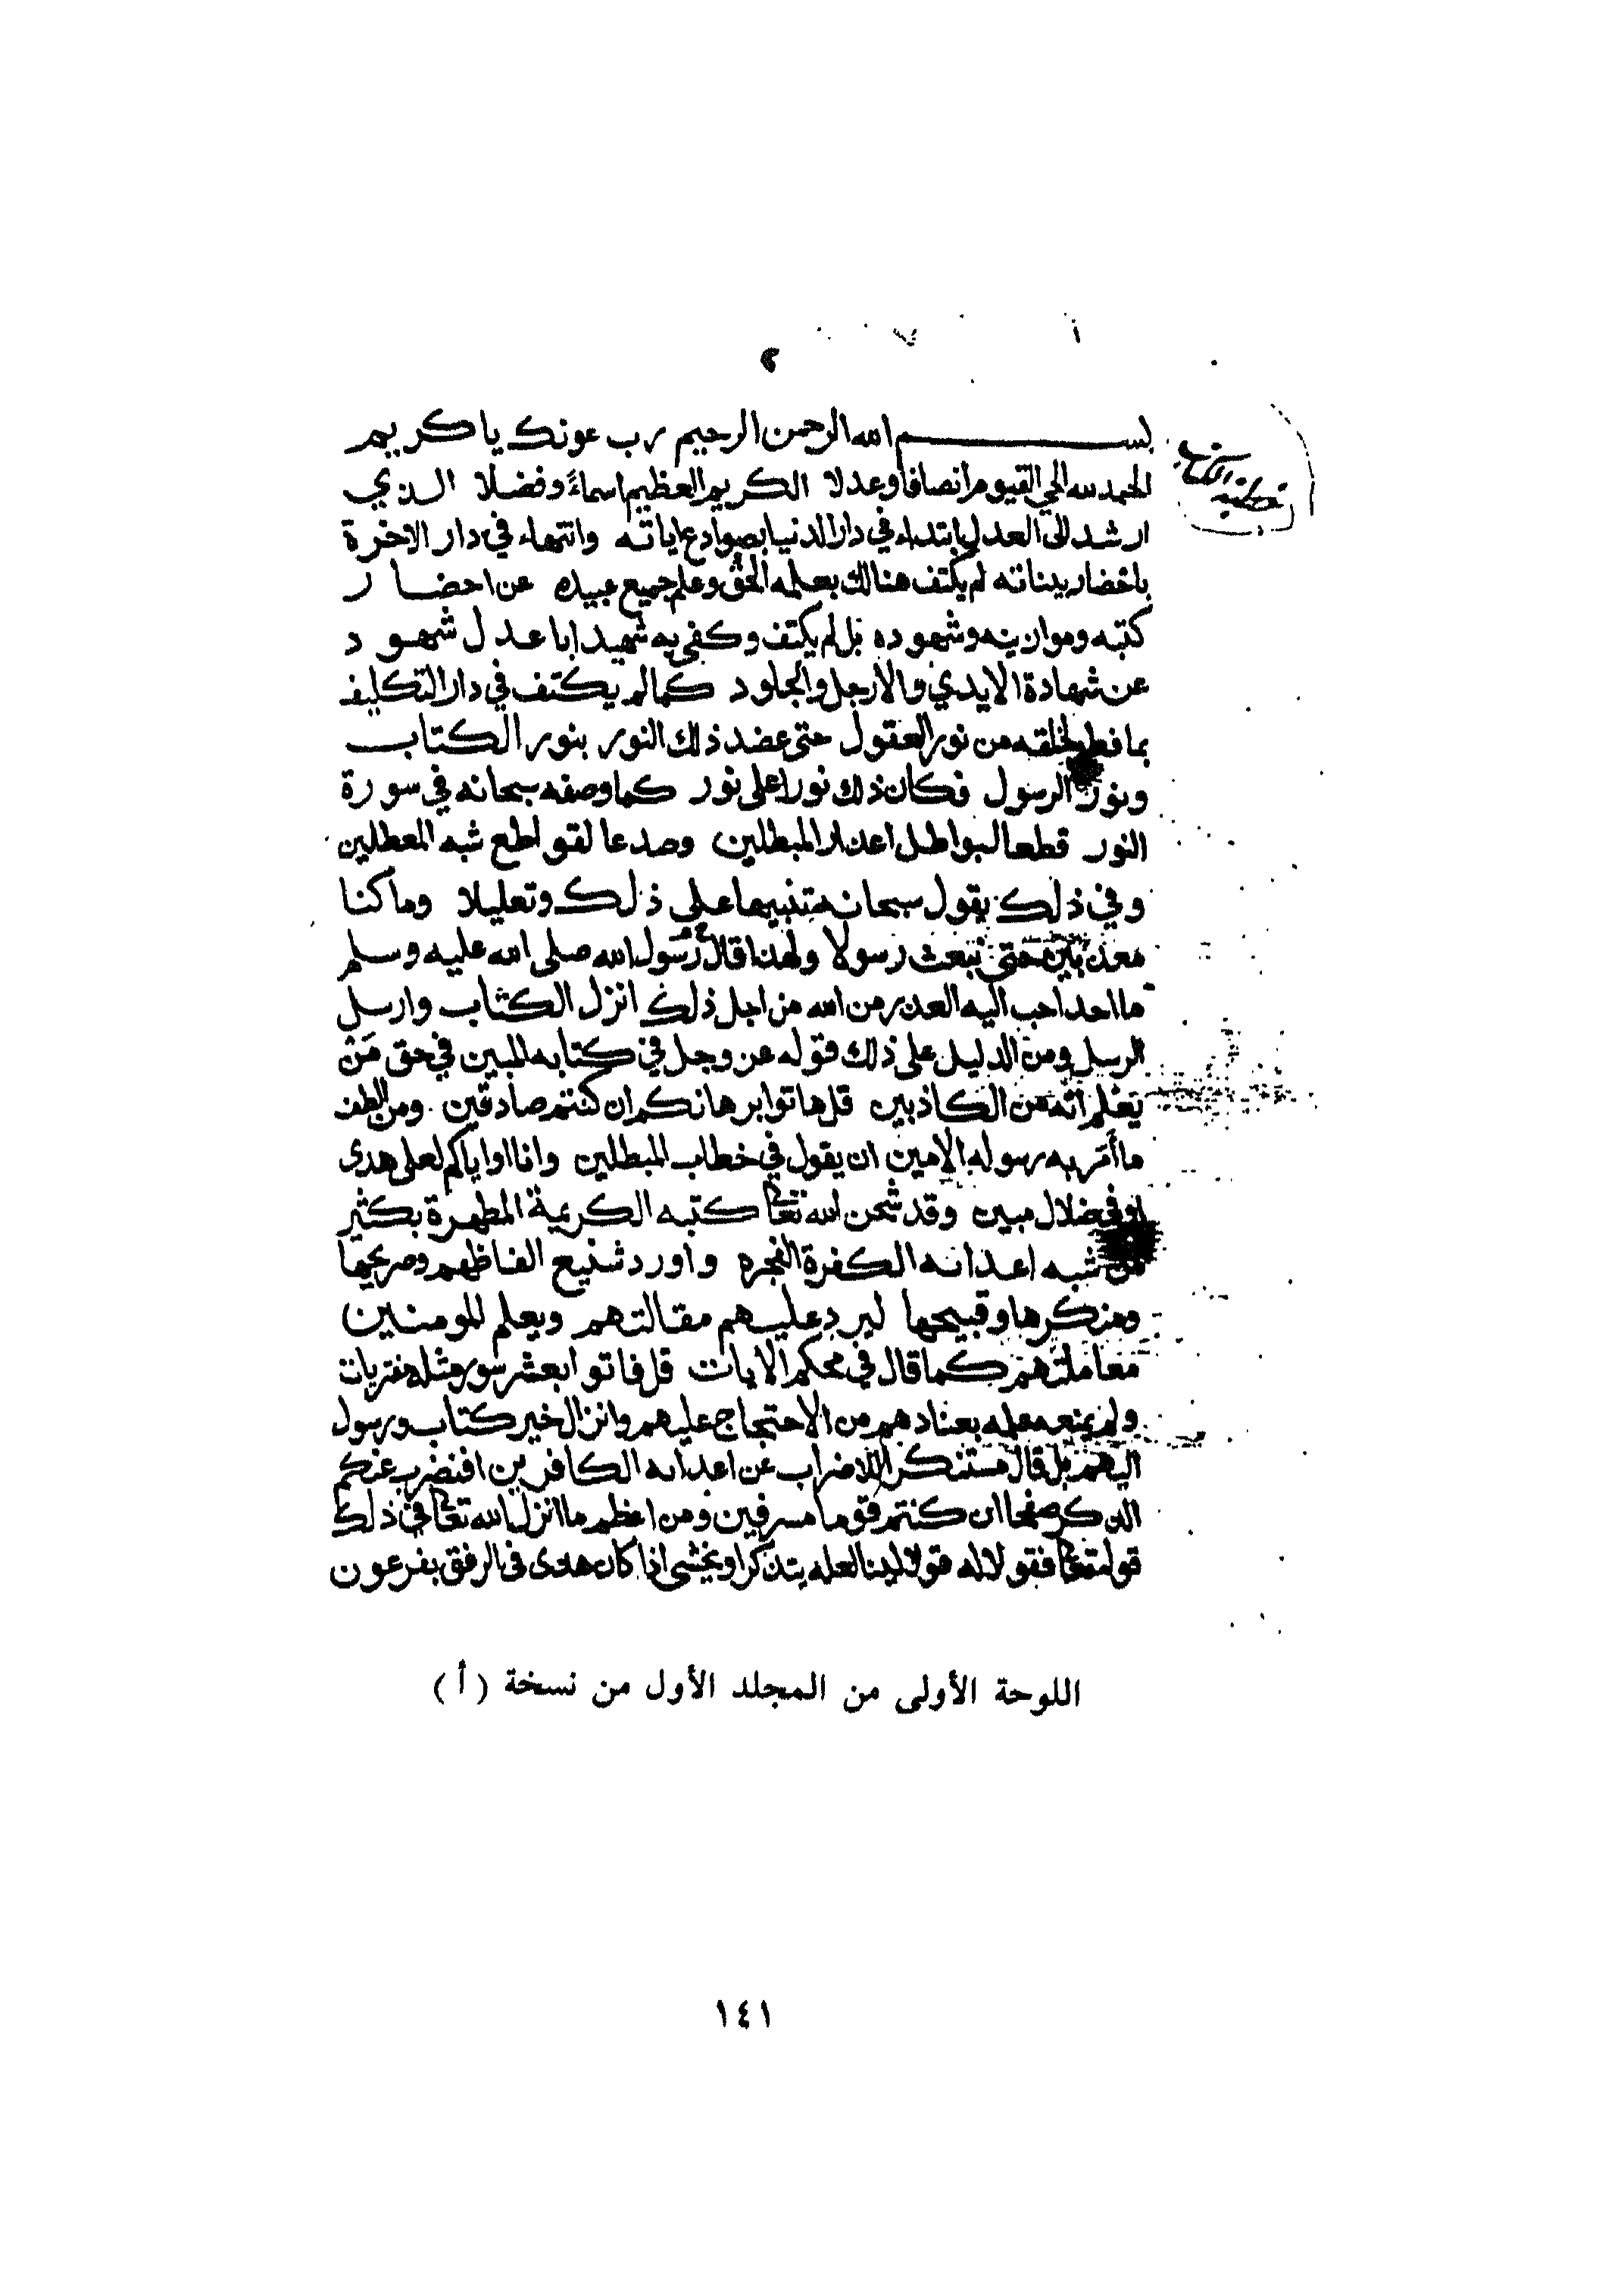 ٢
بســـــم الله الرحمن الرحيم رب عونك يا كريم
الحمد لله الحي القيوم انصافا وعدلا الكريم العظيم اسماءً وفضلا الذي
ارشد الى العدل ابتداء في دار الدنيا بصوادع اياته وانتهاء في دار الاخرة
باحضار بيناته لم يكتف هنالك بعلمه الحق وعلم جميع عبيده عن احضار
كتبه وموازينه وشهوده بل لم يكتف وكفى به شهيدا باعدل شهود
عن شهادة الايدي والارجل والجلود كما لم يكتف في دار التكليف
بما فطر لخلقه من نور العقول حتى عضد ذلك النور بنور الكتاب
ونور الرسول فكان ذلك نورا على نور كما وصفه سبحانه في سورة
النور قطعا لبواطل اعذار المبطلين وصدعا لقواطع شبه المعطلين
وفي ذلك يقول سبحانه متنبيها على ذلك وتعليلا وما كنا
معذبين حتى نبعث رسولا ولهذا قال رسول الله صلى الله عليه وسلم
ما احد احب اليه العذر من الله من اجل ذلك انزل الكتاب وارسل
الرسل ومن الدليل على ذلك قوله عز وجل في كتابه المبين في حق مَنْ
يَعْلم انّه من الكاذبين قل هاتوا برهانكم ان كنتم صادقين ومن الطف
ما أمر به رسوله الامين ان يقول في خطاب المبطلين وانا او اياكم لعلى هدى
او في ضلال مبين وقد شحن الله تعالى كتبه الكريمة المطهرة بكثير
من شبه اعدائه الكفرة الفجره واورد شنيع الفاظهم وصريحها
ومنكرها وقبيحها ليرد عليهم مقالتهم ويعلم للمومنين
معاملتهم كما قال في محكم الايات قل فاتوا بعشر سور مثله مفتريات
ولم يمنعه علمه بعنادهم من الاحتجاج عليهم وانزال خير كتاب ورسول
اليهم بل قال مستنكرا للاضراب عن اعدائه الكافرين افنضرب عنكم
الذكر صفحا ان كنتم قوما مسرفين ومن اعظم ما انزل الله تعالى في ذلك
قوله تعالى فقولا له قولا لينا لعله يتذكر او يخشى اذا كان هذى في الرفق بفرعون
اللوحة الأولى من المجلد الأول من نسخة (أ)
١٤١